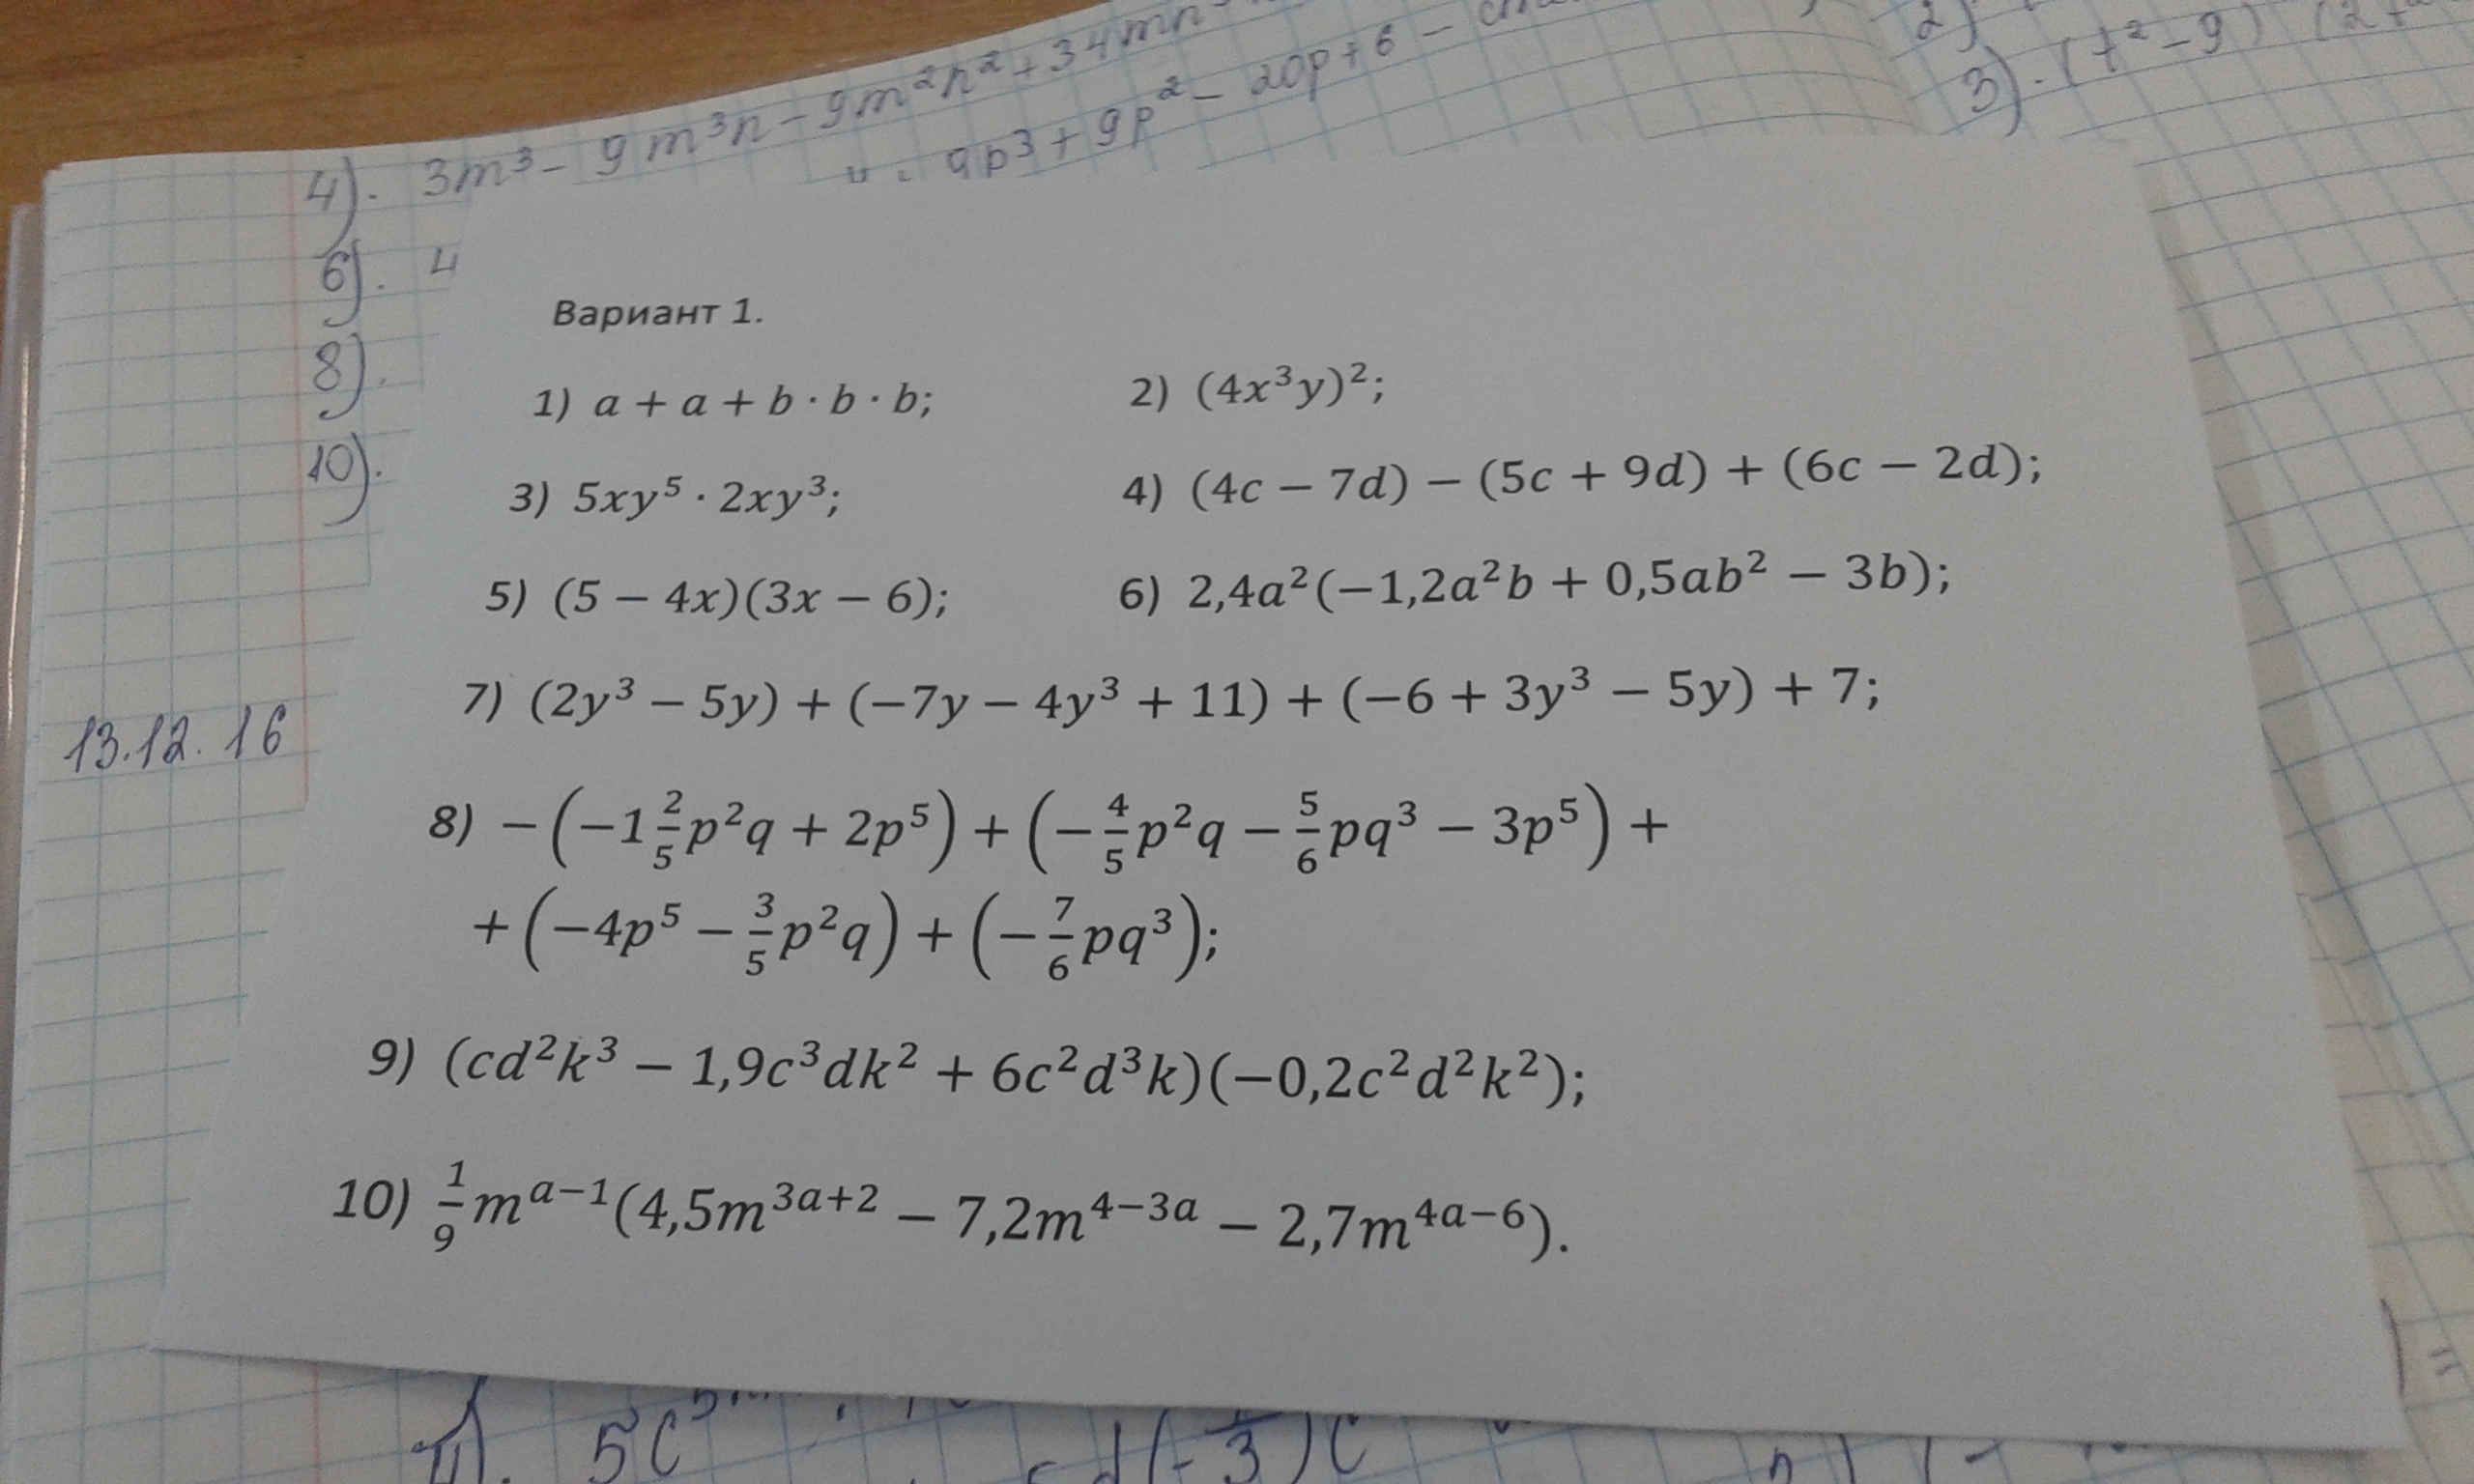 4). 3m³ - 9m³n - 9m²n² + 34mn
9p³ + 9p² - 20p + 6 -
2)
3). (t² - 9)
6). 4
8).
10).
13.12.16
Вариант 1.
1) a + a + b · b · b; 2) (4x³y)²;
3) 5xy⁵ · 2xy³; 4) (4c − 7d) − (5c + 9d) + (6c − 2d);
5) (5 − 4x)(3x − 6); 6) 2,4a²(−1,2a²b + 0,5ab² − 3b);
7) (2y³ − 5y) + (−7y − 4y³ + 11) + (−6 + 3y³ − 5y) + 7;
8) −(−1 2/5 p²q + 2p⁵) + (−4/5 p²q − 5/6 pq³ − 3p⁵) +
+ (−4p⁵ − 3/5 p²q) + (−7/6 pq³);
9) (cd²k³ − 1,9c³dk² + 6c²d³k)(−0,2c²d²k²);
10) 1/9 mᵃ⁻¹(4,5m³ᵃ⁺² − 7,2m⁴⁻³ᵃ − 2,7m⁴ᵃ⁻⁶).